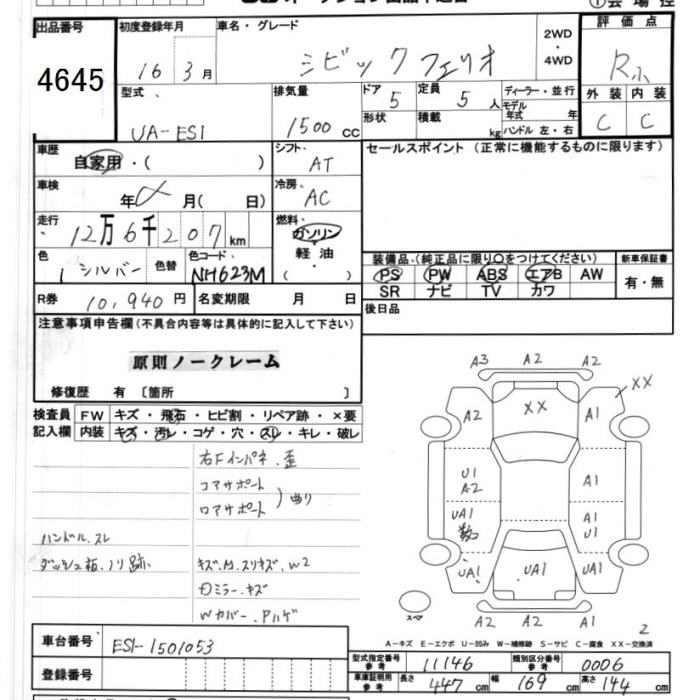 出品番号
4645
初度登録年月
16 3月
車名・グレード
シビック フェリオ
2WD
・
4WD
評価点
R
外装 内装
C C
型式
UA-ES1
排気量
1500 cc
ドア
5
形状
定員
5 人
積載
kg
ディーラー・並行
モデル
年式 年
ハンドル 左・右
車歴
自家用・( )
シフト
AT
車検
年 月( 日)
冷房
AC
走行
12万6千207 km
燃料
ガソリン
軽油
( )
色
シルバー
色替
色コード
NH623M
R券 10,940 円
名変期限 月 日
セールスポイント (正常に機能するものに限ります)
装備品、(純正品に限り○をつけてください)
PS PW ABS エアB AW
SR ナビ TV カワ
新車保証書
有・無
後日品
注意事項申告欄(不具合内容等は具体的に記入して下さい)
原則ノークレーム
修復歴 有 〔箇所 〕
検査員
記入欄
FW キズ・飛石・ヒビ割・リペア跡・×要
内装 キズ・汚レ・コゲ・穴・スレ・キレ・破レ
右Fインパネ.歪
コアサポート
ロアサポート
)曲り
ハンドル.スレ
ダッシュ板.ノリ跡.
キズ.M.スリキズ.W2
ミラー.キズ
Wカバー.Pハゲ
A3 A2 A2
XX
A2 XX A1
U1
A2
A1
UA1
数コ
A1
U1
UA1 UA1 UA1
スペア
A2 A2 A1
2
A-キズ E-エクボ U-凹み W-補修跡 S-サビ C-腐食 XX-交換済
車台番号 ES1-1501053
登録番号
型式指定番号
参考
11146
類別区分番号
参考
0006
車庫証明用
参考
長さ 447 cm 幅 169 cm 高さ 144 cm